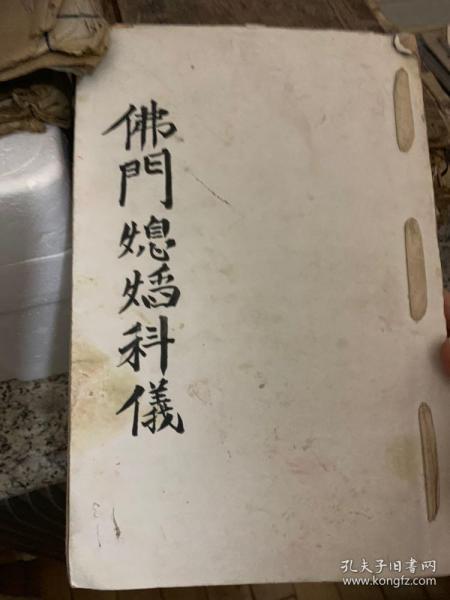 佛門媳婿科儀
孔夫子旧书网
www.kongfz.com